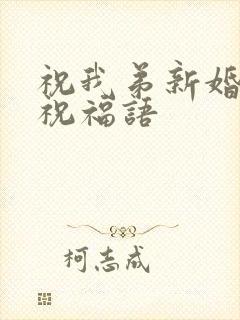 祝我弟新婚
祝福語
柯志成